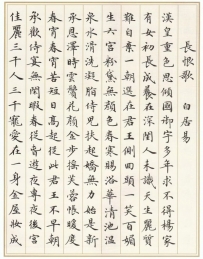 長恨歌 白居易
漢皇重色思傾國御宇多年求不得楊家
有女初長成養在深閨人未識天生麗質
難自棄一朝選在君王側回眸一笑百媚
生六宮粉黛無顏色春寒賜浴華清池溫
泉水滑洗凝脂侍兒扶起嬌無力始是新
承恩澤時雲鬢花顏金步搖芙蓉帳暖度
春宵春宵苦短日高起從此君王不早朝
承歡侍宴無閒暇春從春遊夜專夜後宮
佳麗三千人三千寵愛在一身金屋妝成